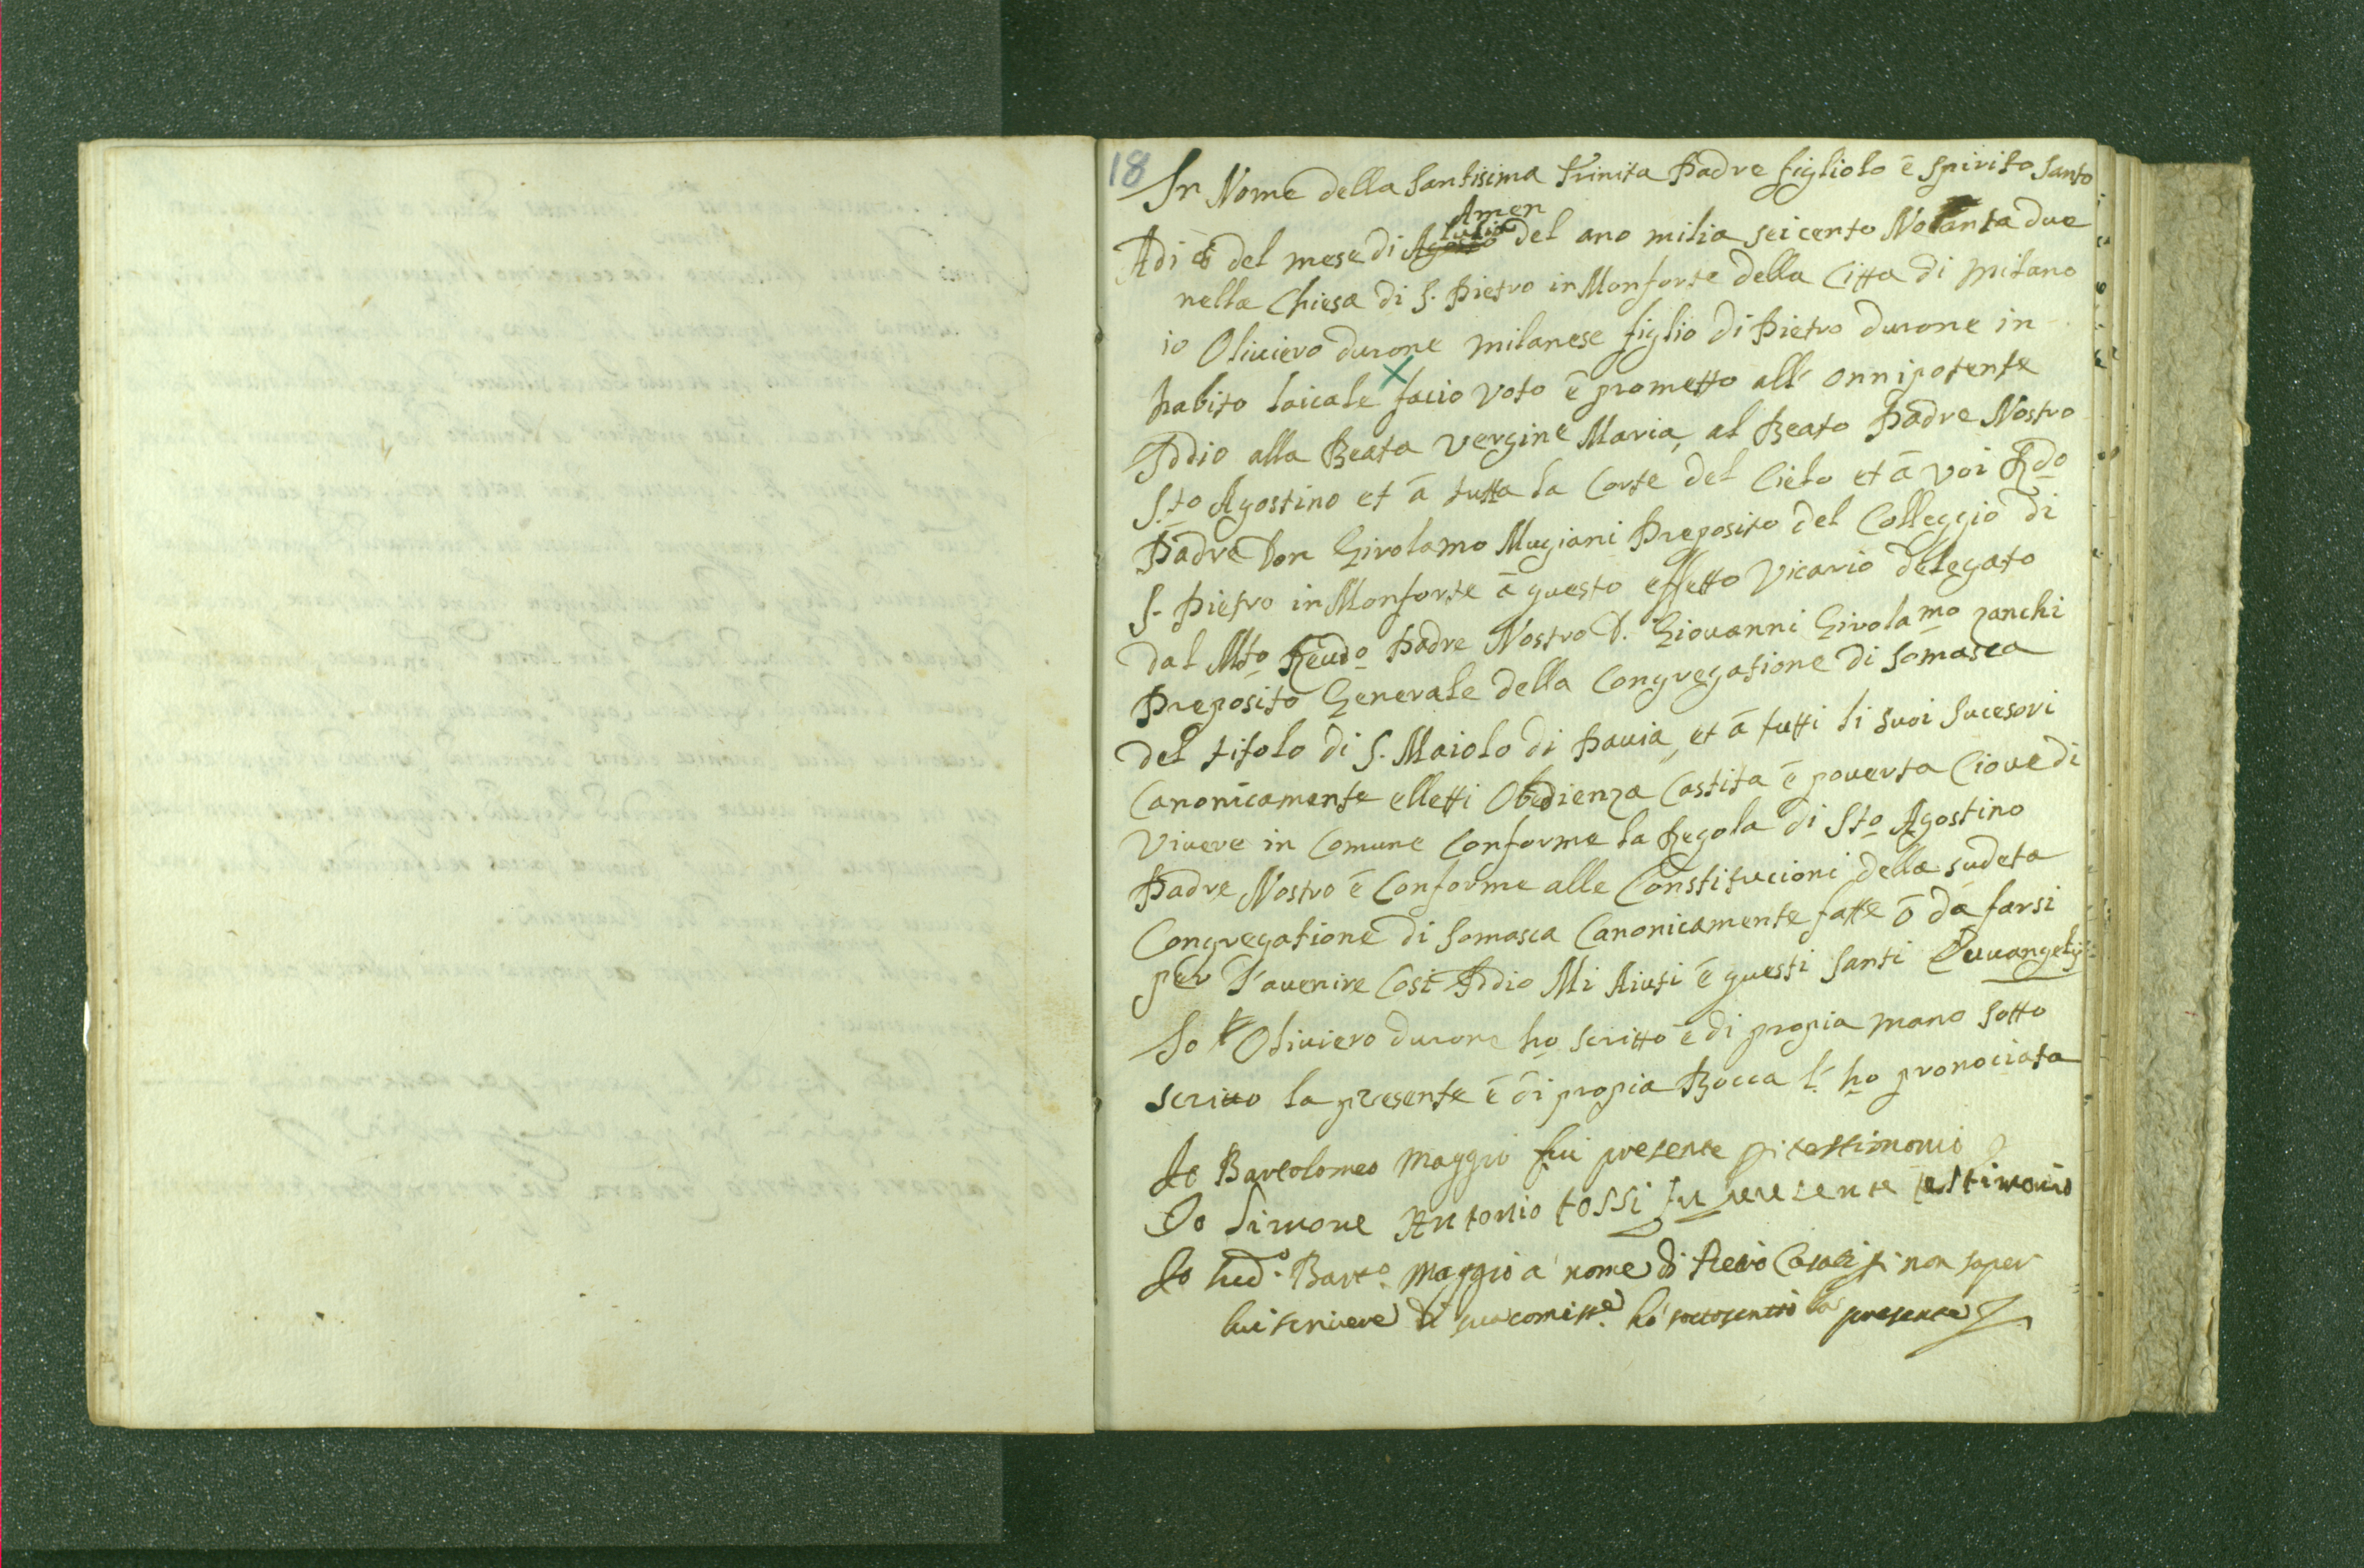 18
In Nome della Santisima Trinita Padre figliolo ē Spirito Santo
Amen
Adi 6 del mese di Agosto Lulio del ano milia seicento Notanta due
nella Chiesa di S. Pietro in Monforte della Citta di Milano
io Oliuiero durone milanese figlio di Pietro durone in
habito laicale facio voto ē prometto all' onnipotente
Iddio alla Beata vergine Maria, al Beato Padre Nostro
S.to Agostino et ā tutta la Corte del Cielo et ā voi Rdo
Padre Don Girolamo Mugiani Preposito del Colleggio di
S. Pietro in Monforte ā questo effetto Vicario delegato
dal Mto Reudo Padre Nostro D. Giouanni Girolamo zanchi
Preposito Generale della Congregatione di Somasca
del titolo di S. Maiolo di Pauia, et ā tutti li suoi Sucesori
Canonicamente elletti Obedienza Castita ē pouerta Cioue di
Viuere in Comune Conforme la Regola di Sto Agostino
Padre Nostro ē Conforme alle Constitucioni della sudeta
Congregatione di Somasca Canonicamente fatte ō da farsi
per l'auenire Cosi Iddio Mi Aiuti ē questi Santi Euuangelij
Io Oliuiero durone ho scritto ē di propia mano sotto
scriuo la presente ē di propia Bocca l' ho pronociata
Io Bartolomeo Maggio fui presente pi testimonio
Io Simone Antonio tossi fu presente testimonio
Io sud.o Barto. Maggio a nome di non saper
lui scriuere di sua comisse. hò sottoscritto la presente